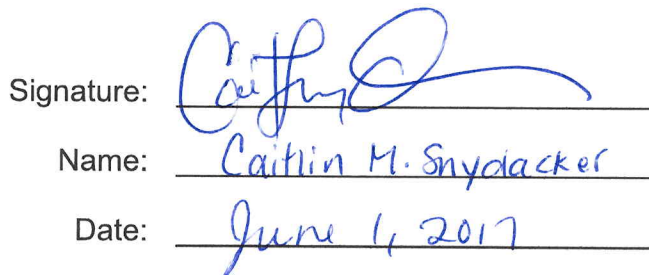 Signature:
Name: Caitlin M. Snydacker
Date: June 1, 2017